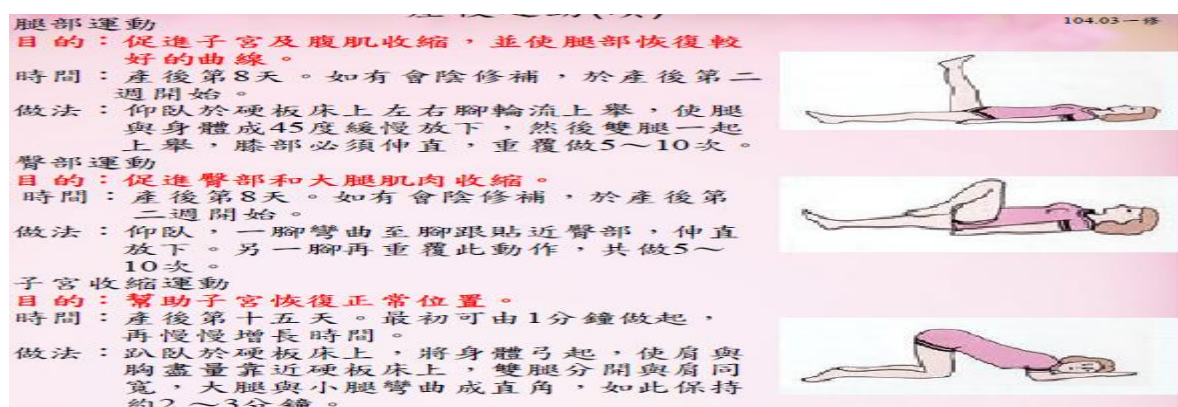 104.03一修
腿部運動
目的：促進子宮及腹肌收縮，並使腿部恢復較
好的曲線。
時間：產後第8天。如有會陰修補，於產後第二
週開始。
做法：仰臥於硬板床上左右腳輪流上舉，使腿
與身體成45度緩慢放下，然後雙腿一起
上舉，膝部必須伸直，重覆做5～10次。
臀部運動
目的：促進臀部和大腿肌肉收縮。
時間：產後第8天。如有會陰修補，於產後第
二週開始。
做法：仰臥，一腳彎曲至腳跟貼近臀部，伸直
放下。另一腳再重覆此動作，共做5～
10次。
子宮收縮運動
目的：幫助子宮恢復正常位置。
時間：產後第十五天。最初可由1分鐘做起，
再慢慢增長時間。
做法：趴臥於硬板床上，將身體弓起，使肩與
胸盡量靠近硬板床上，雙腿分開與肩同
寬，大腿與小腿彎曲成直角，如此保持
約2～3分鐘。